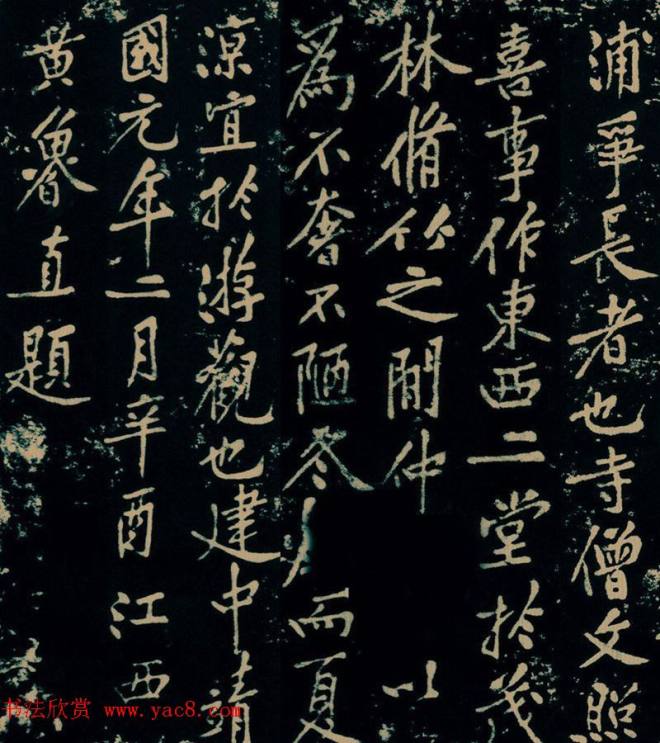 浦爭長者也寺僧文照
喜事作東西二堂於茂
林脩竹之閒仲 以
爲不奢不陋冬 而夏
涼宜於游觀也建中靖
國元年二月辛酉江西
黃魯直題
书法欣赏 www.yac8.com